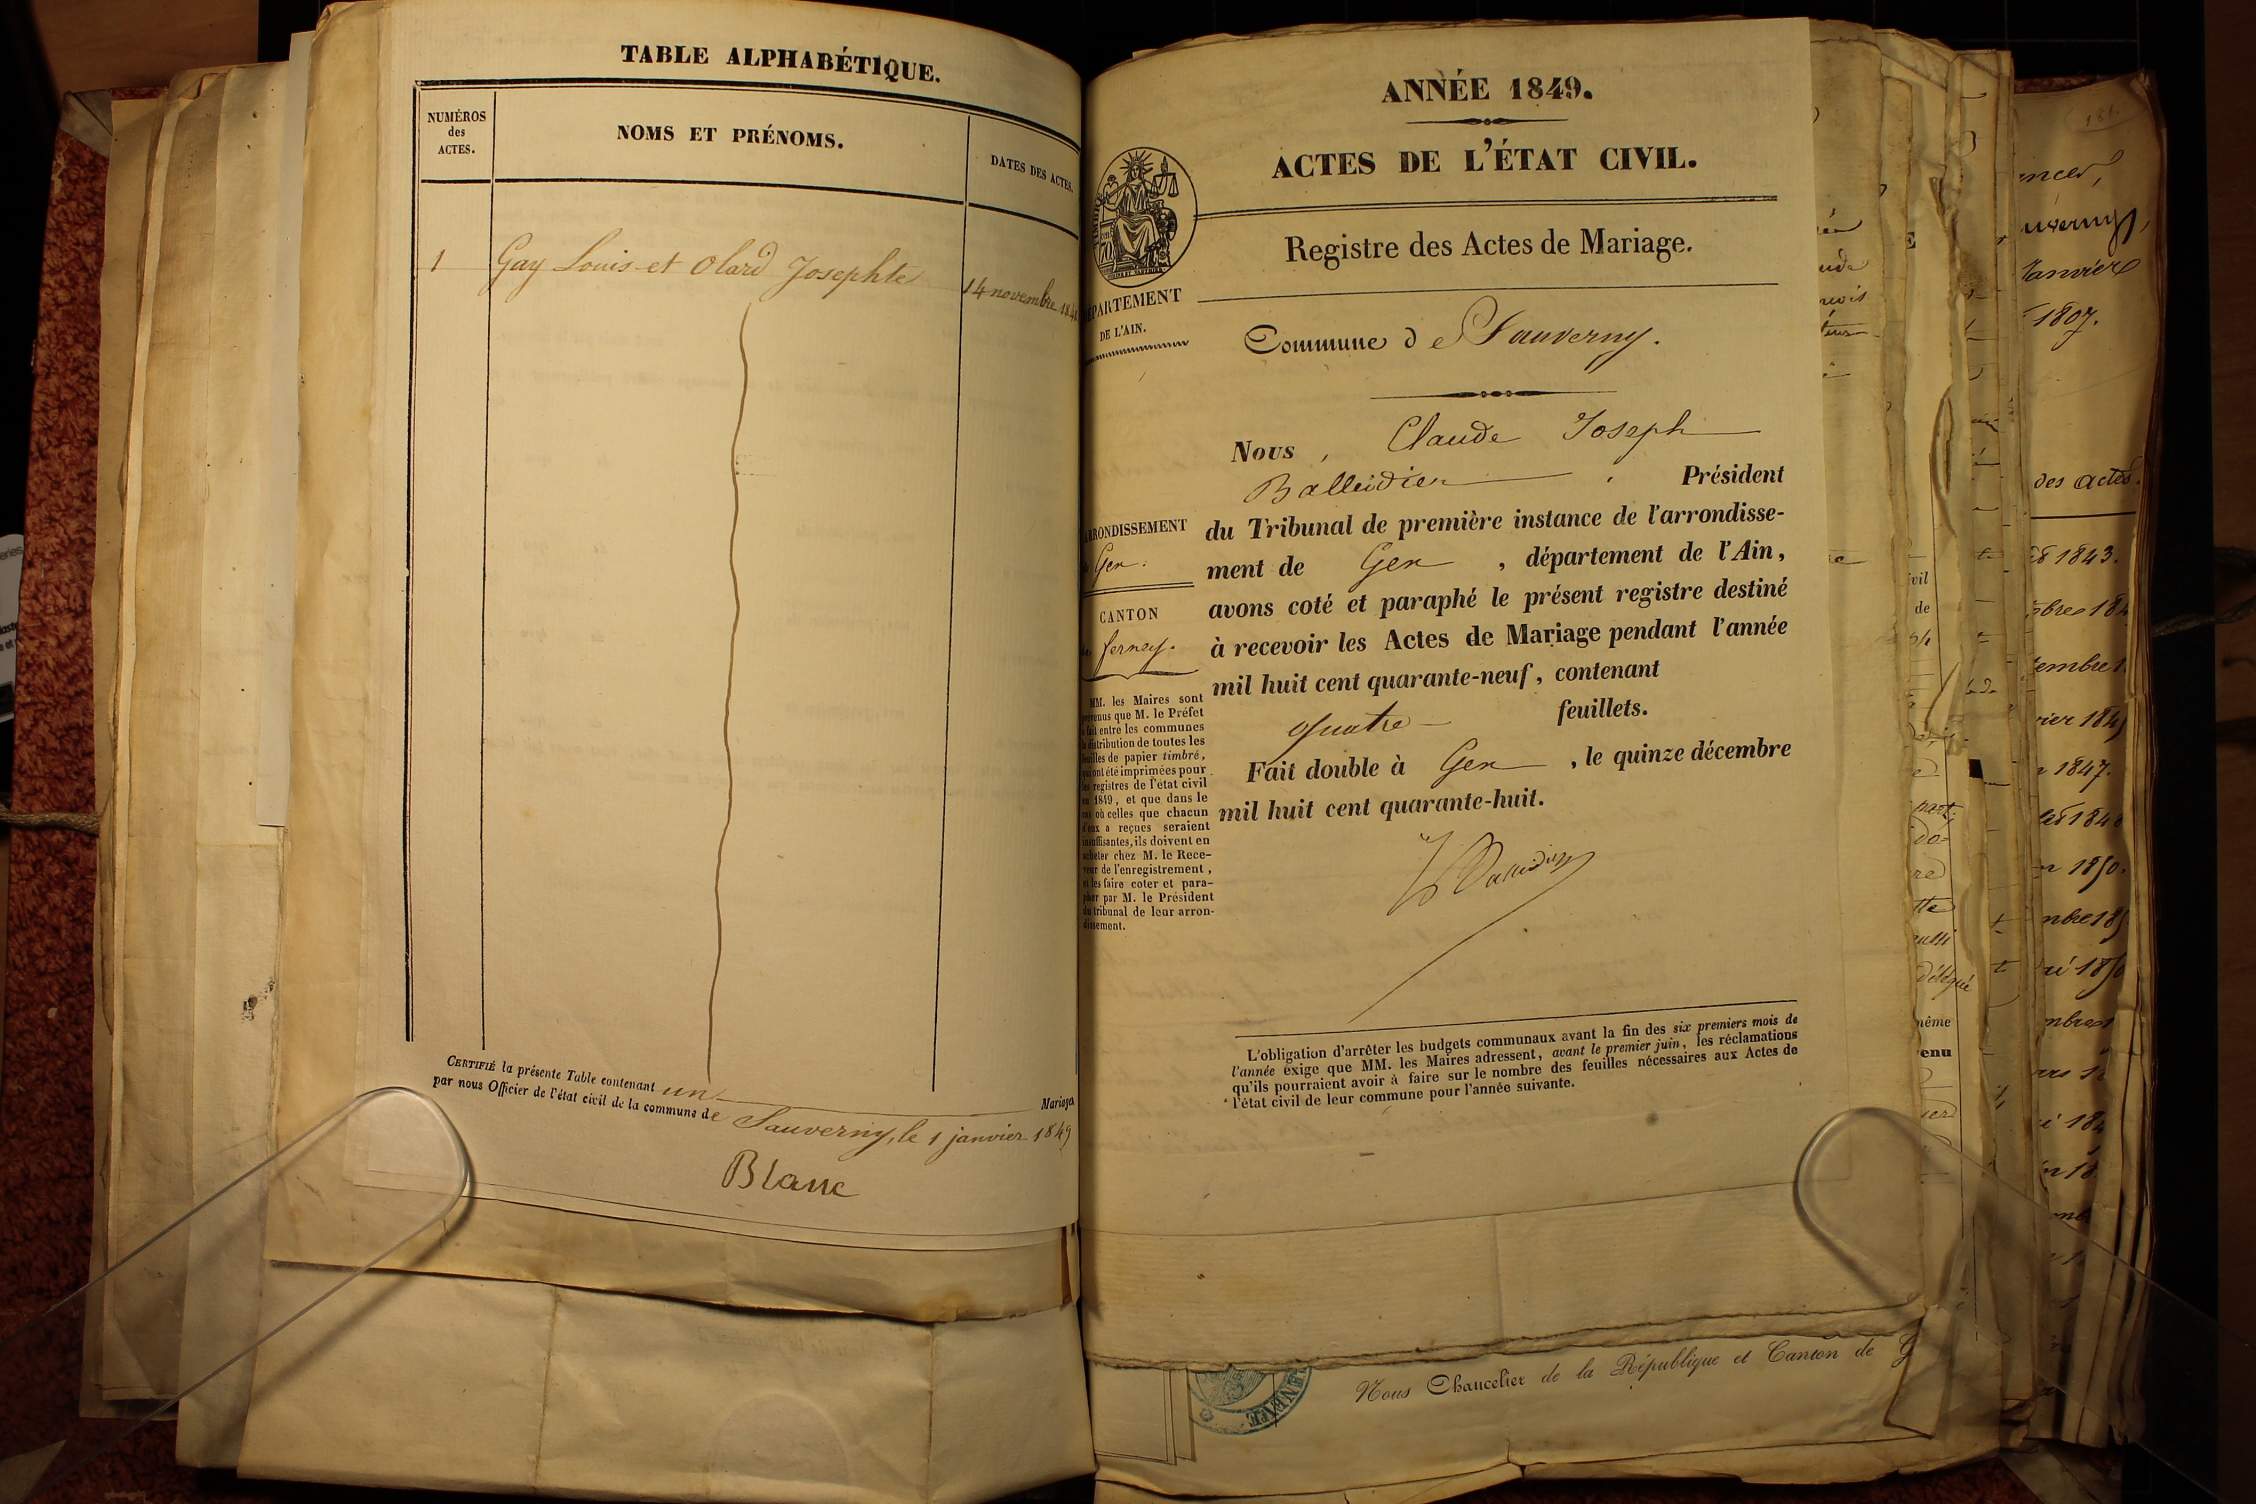 TABLE ALPHABÉTIQUE.
NUMÉROS
des
ACTES.
NOMS ET PRÉNOMS.
DATES DES ACTES.
1 Gay Louis et Olard Josephte 14 novembre
CERTIFIÉ la présente Table contenant un Mariage
par nous Officier de l'état civil de la commune de Sauverny, le 1 janvier 1849
Blanc
ANNÉE 1849.
ACTES DE L'ÉTAT CIVIL.
Registre des Actes de Mariage.
DÉPARTEMENT
DE L'AIN.
Commune de Sauverny.
Nous, Claude Joseph
Balleidier, Président
du Tribunal de première instance de l'arrondisse-
ment de Gex, département de l'Ain,
avons coté et paraphé le présent registre destiné
à recevoir les Actes de Mariage pendant l'année
mil huit cent quarante-neuf, contenant
quatre feuillets.
Fait double à Gex, le quinze décembre
mil huit cent quarante-huit.
Balleidier
ARRONDISSEMENT
Gex.
CANTON
Ferney.
MM. les Maires sont
prévenus que M. le Préfet
a fait entre les communes
la distribution de toutes les
feuilles de papier timbré,
qui ont été imprimées pour
les registres de l'état civil
en 1849, et que dans le
cas où celles que chacun
d'eux a reçues seraient
insuffisantes, ils doivent en
acheter chez M. le Rece-
veur de l'enregistrement,
et les faire coter et para-
pher par M. le Président
du tribunal de leur arron-
dissement.
L'obligation d'arrêter les budgets communaux avant la fin des six premiers mois de
l'année exige que MM. les Maires adressent, avant le premier juin, les réclamations
qu'ils pourraient avoir à faire sur le nombre des feuilles nécessaires aux Actes de
l'état civil de leur commune pour l'année suivante.
Nous Chancelier de la République et Canton de G
181.
Janvier
1807.
des actes.
1843.
1847.
1850.